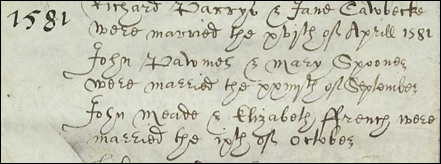 1581 Richard Parrys & Jane Eawbecke
were married the xvjth of Aprill 1581
John Pawmer & Mary Spooner
were married the xxiijth of September
John Meade & Elizabeth Ffrench were
married the ixth of October